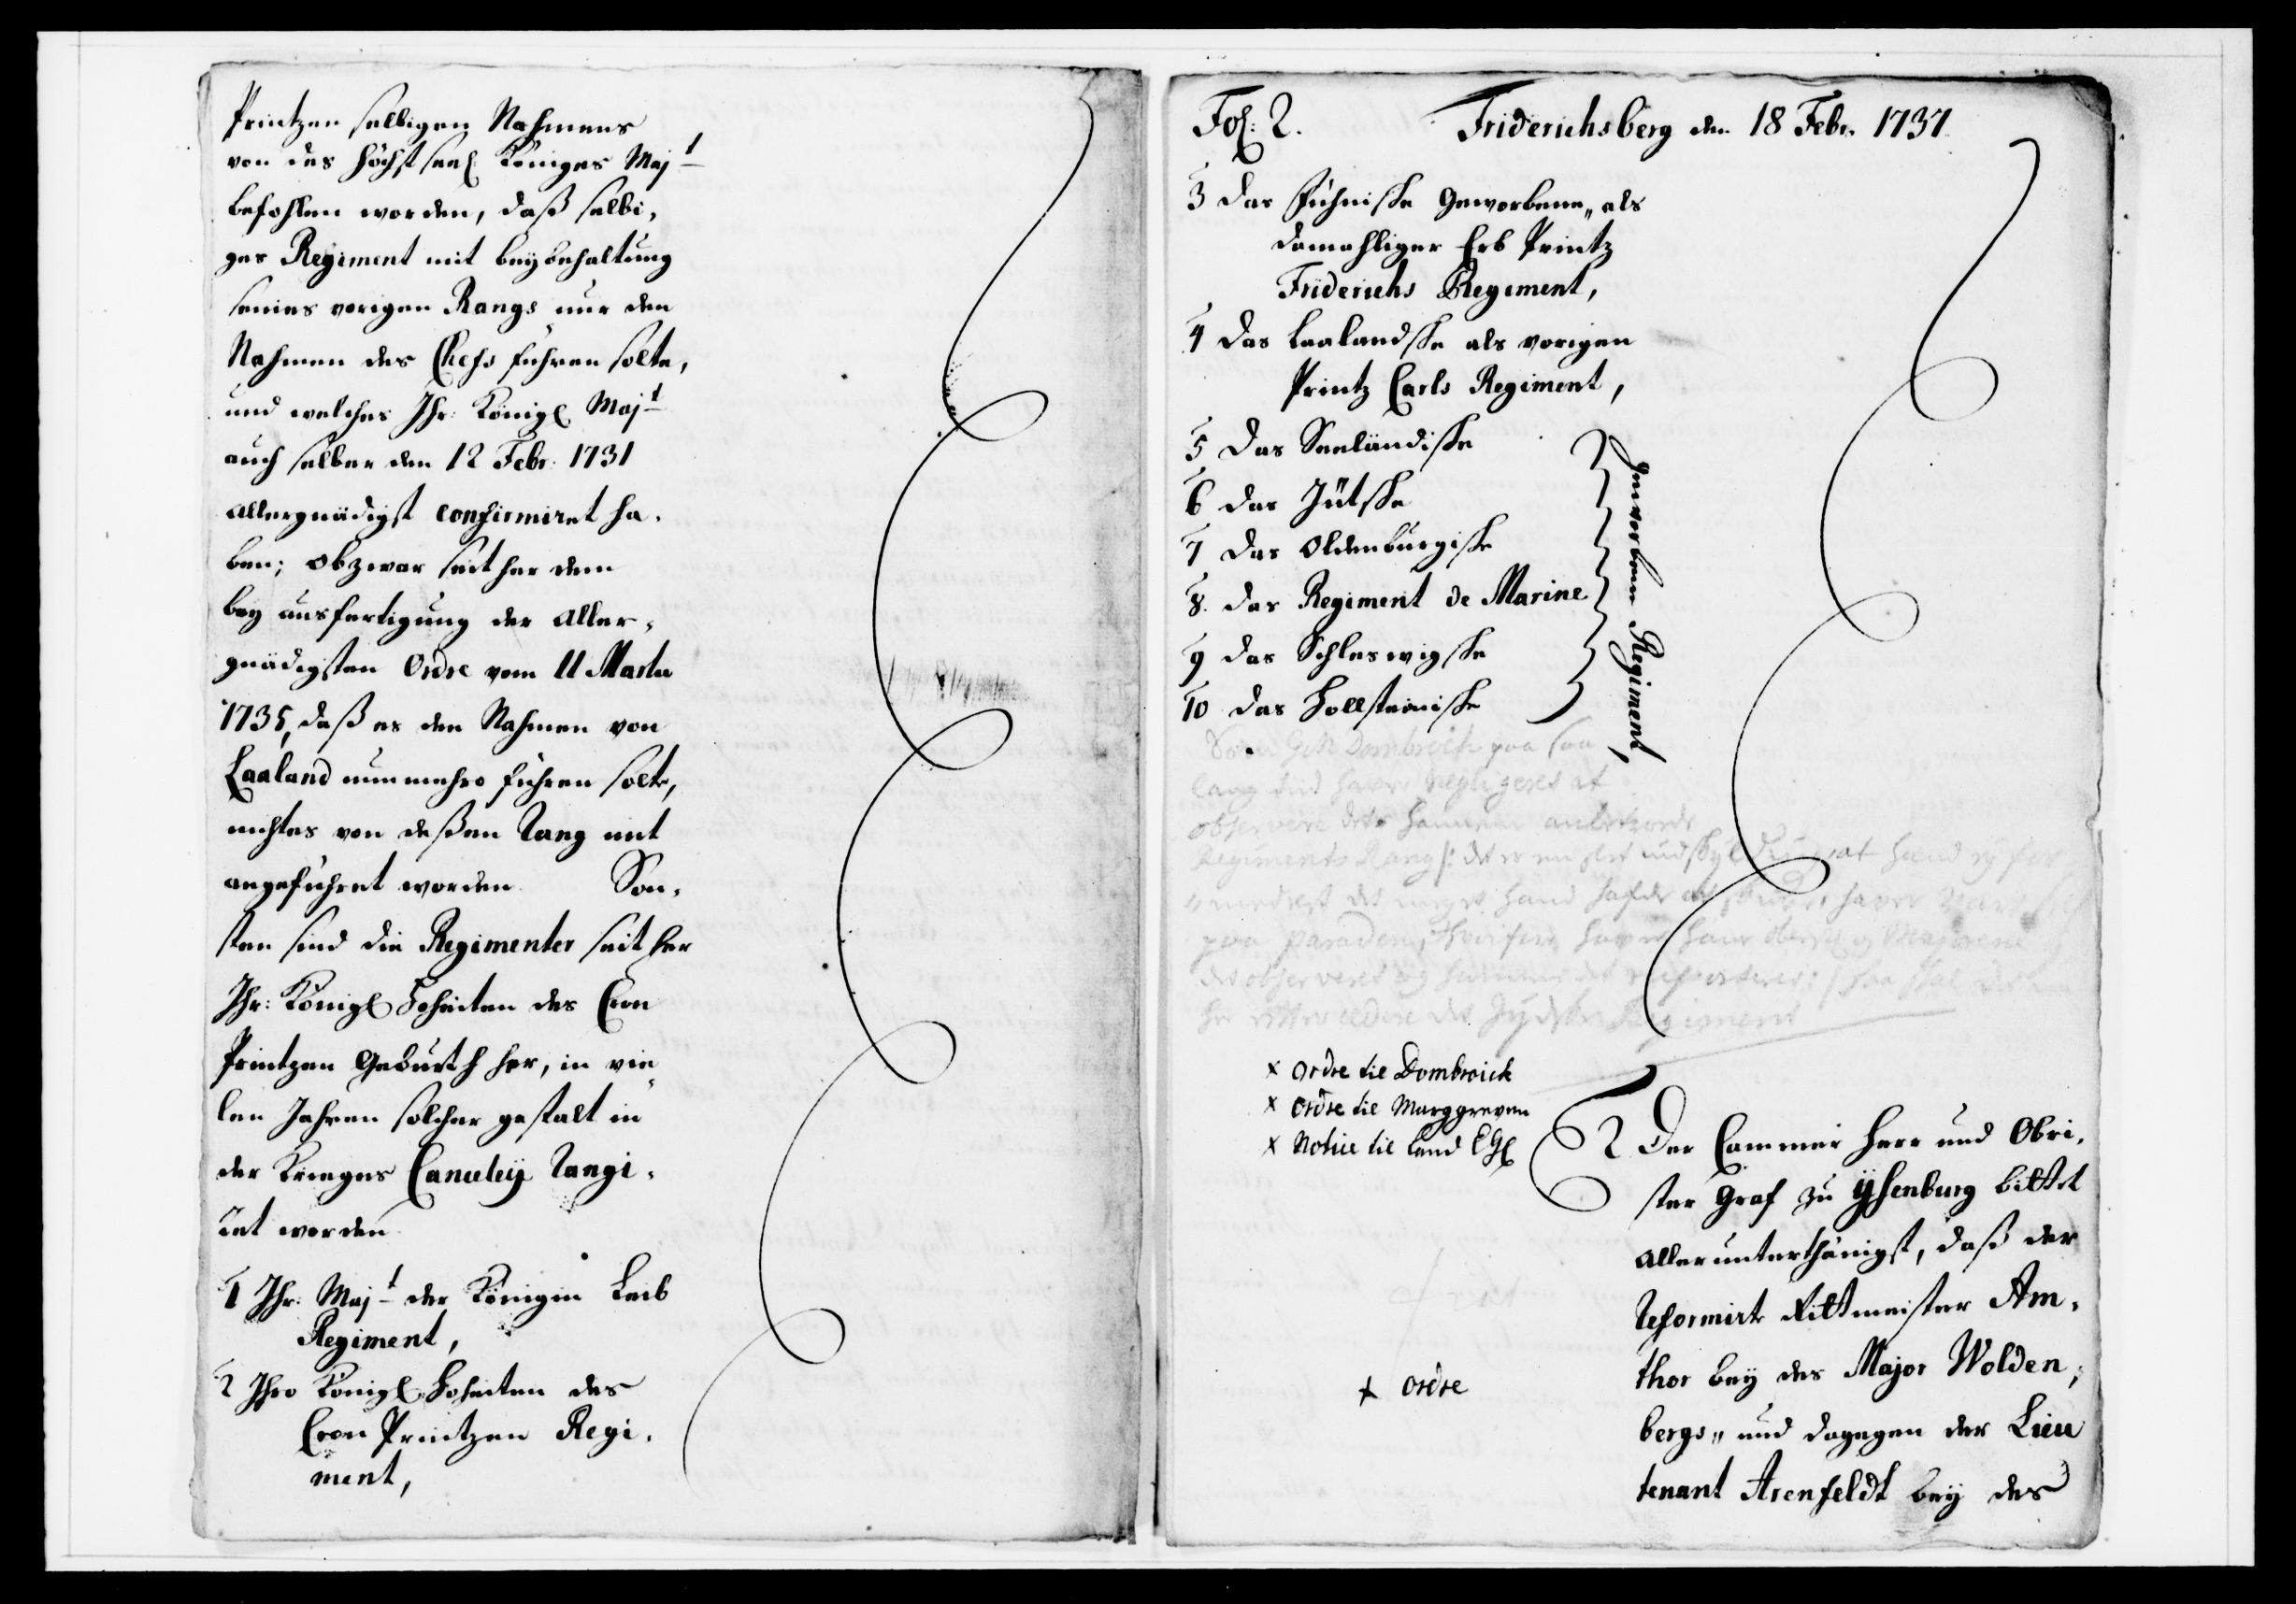 Printzen selbigen Nahmens
von des höchst seel Königes Majt
befohlen worden, daß selbi,
ges Regiment mit beybehaltung
seines vorigen Rangs nur den
Nahmen des Chefs führen solte,
und welches Ihr: Königl Majt
auch selber den 12 Febr: 1731
allergnädigst confirmiret ha,
ben; obzwar seither dem
bey ausfertigung der Aller,
gnädigsten Ordre vom 11 Martii
1735, daß es den Nahmen von
Laaland nunmehro führen solte,
nichtes von deßen Rang mit
angeführet worden. Son,
sten sind die Regimenter seit her
Ihr: Königl Hoheiten des Cron
Printzen Gebuhrt her, in vie
len Jahren solcher gestalt in
der Krieges Canceley rangi,
ret worden
1 Ihr. Majt der Königin Leib
Regiment,
2 Ihro Königl Hoheiten des
Cron Printzen Regi,
ment,
Fol: 2. Friderichsberg den 18 Febr. 1737
3 das Fühniske Geworbene,, als
damahliger Erb Printz
Friderichs Regiment,
4 das Laalandske als vorigen
Printz Carls Regiment,
5 das Seeländiske
6 das Jütske
7 das Oldenburgiske
8. das Regiment de Marine
9 das Schleswigske
10 das Hollsteiniske
Geworbene Regiment,
Dombroick paa saa
lang tid haver negligeret at
observere det
Regiments Rang
paa Paraden,
det observeret og
det Jydske Regiment
x ordre til Dombroick
x ordre til Marggreven
x Notice til Land EGl
2 Der Cammer Herr und Obri,
ster Graf zu Ysenburg bittet
allerunterthänigst, daß der
Reformirte Rittmeister Am,
thor bey des Major Wolden,
bergs,, und dagegen der Lieu
tenant Arenfeldt bey des
x ordre